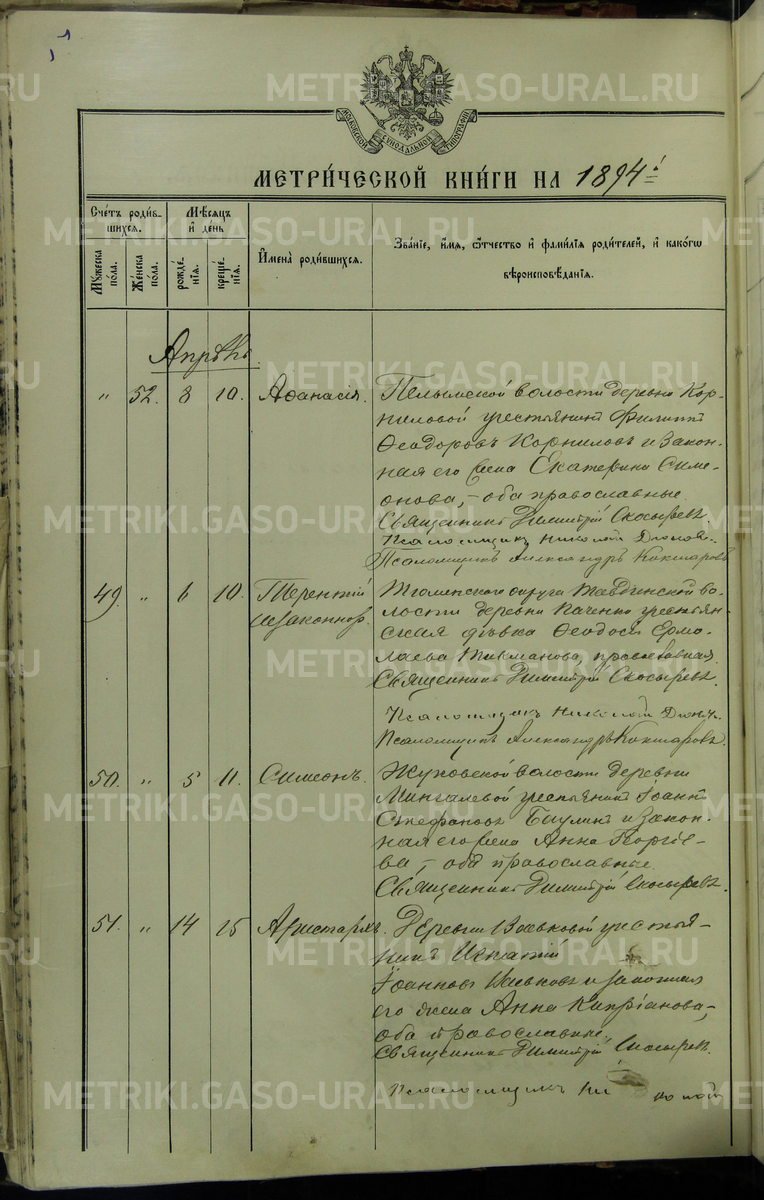 МОСКОВСКОЙ СѴНОДАЛЬНОЙ ТИПОГРАФІИ
МЕТРИ́ЧЕСКОЙ КНИ́ГИ НА 1894
Сче́тъ роди́в-
шихся.
Мѣ́сяцъ
и де́нь
Му́жеска по́ла.
Же́нска по́ла.
рожде́нія.
креще́нія.
Имена̀ роди́вшихся.
Зва́ніе, и́мя, ѻ́тчество и фами́лія роди́телей, и како́гѡ
вѣроисповѣ́данія.
Апрѣль
" 52. 8 10. Аѳанасія. Пелымской волости деревни Кор-
ниловой крестьянинъ Филиппъ
Ѳеодоровъ Корниловъ и закон.
ная его жена Екатерина Симе-
онова, – оба православные.
Священникъ Димитрій Скосыревъ.
Псаломщикъ Николай
Псаломщикъ Александръ Кокшаровъ
49. " 6 10. Терентій Тюменскаго округа Тавдинской во-
незаконнор. лости деревни крестьян-
ская дѣвка Ѳеодосія Ермо-
лаева православная
Священникъ Димитрій Скосыревъ.
Псаломщикъ Николай
Псаломщикъ Александръ Кокшаровъ.
50. " 5 11. Симеонъ. Жуковской волости деревни
крестьянинъ Іоаннъ
Стефановъ и закон.
ная его жена Анна Георгіе-
ва, – оба православные.
Священникъ Димитрій Скосыревъ.
51. " 14 15 Аристархъ. Деревни Васьковой крестья-
нинъ Игнатій
Іоанновъ Васьковъ и законная
его жена Анна Кипріанова,
оба православные.
Священникъ Димитрій Скосыревъ.
Псаломщикъ Николай
METRIKI.GASO-URAL.RU